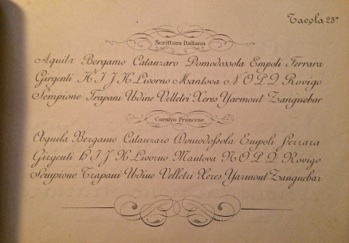 Tavola 23ª
Scrittura Italiana
Aquila Bergamo Catanzaro Domodossola Empoli Ferrara
Girgenti H I J K Livorno Mantova N O P Q Rovigo
Sempione Trapani Udine Velletri Xeres Yarmout Zanguebar
Corsivo Francese
Aquila Bergamo Catanzaro Domodossola Empoli Ferrara
Girgenti H I J K Livorno Mantova N O P Q Rovigo
Sempione Trapani Udine Velletri Xeres Yarmout Zanguebar